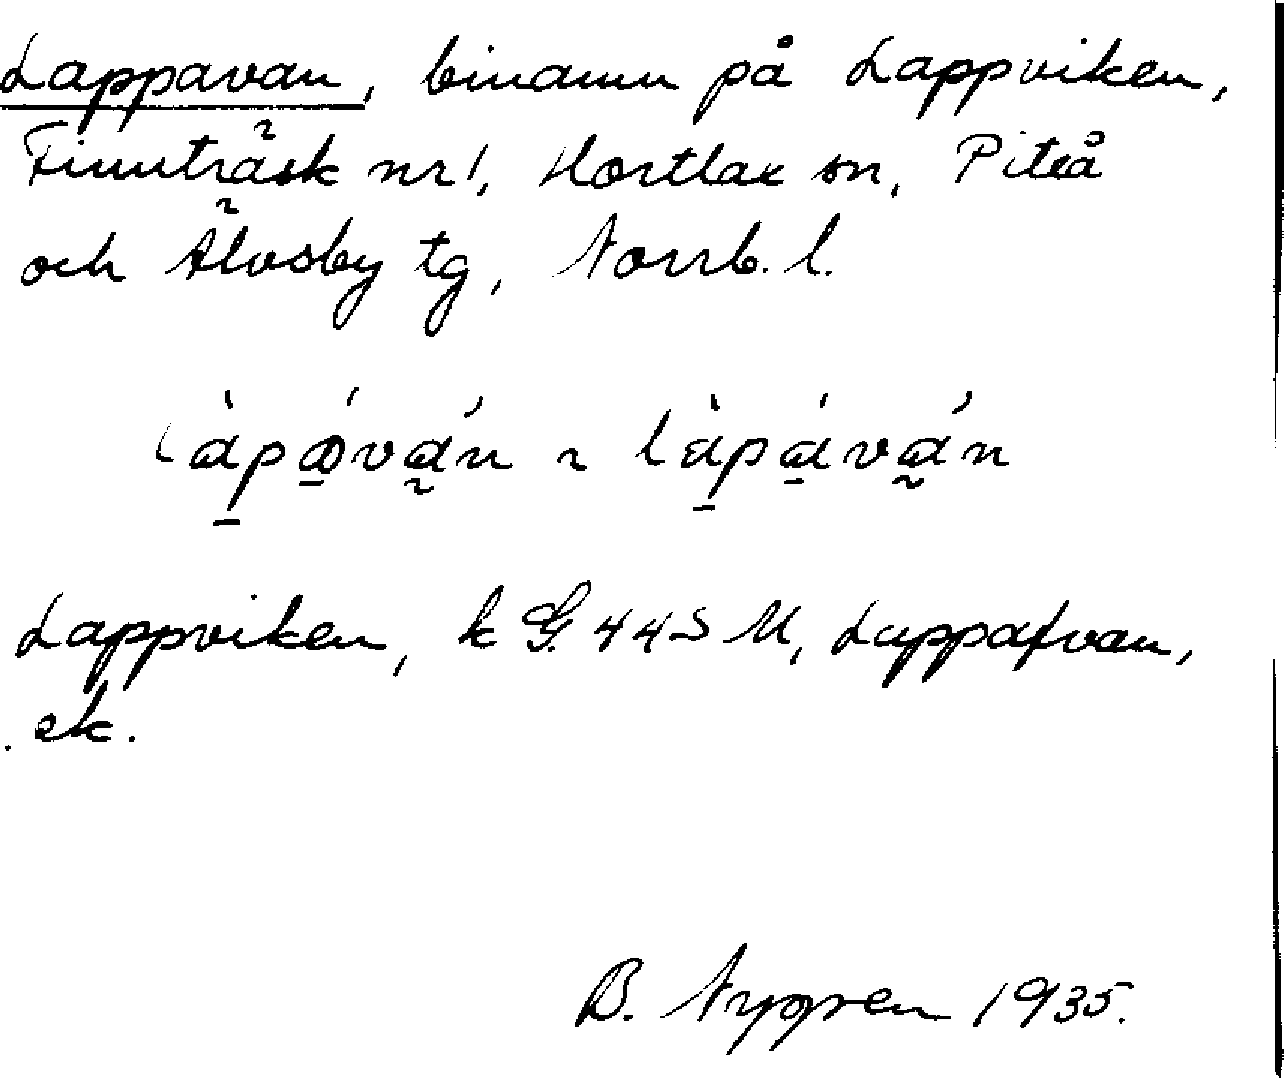 Lappavan, binamn på Lappviken,
Finnträsk nr 1, Hortlax sn, Piteå
och Älvsby tg, Norrb. l.
Lappviken, k G. 445 M, Lappafvan,
ek.
B. Nygren 1935.